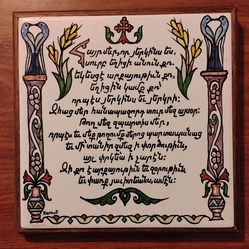 Հայր մեր, որ յերկինս ես.
սուրբ եղիցի անուն քո.
եկեսցէ արքայութիւն քո,
եղիցին կամք քո
որպէս յերկինս եւ յերկրի:
Զհաց մեր հանապազորդ տուր մեզ այսօր:
Թող մեզ զպարտիս մեր,
որպէս եւ մեք թողումք մերոց պարտապանաց
եւ մի տանիր զմեզ ի փորձութիւն,
այլ փրկեա ի չարէն:
Զի քո է արքայութիւն եւ զօրութիւն
եւ փառք յաւիտեանս, ամէն: